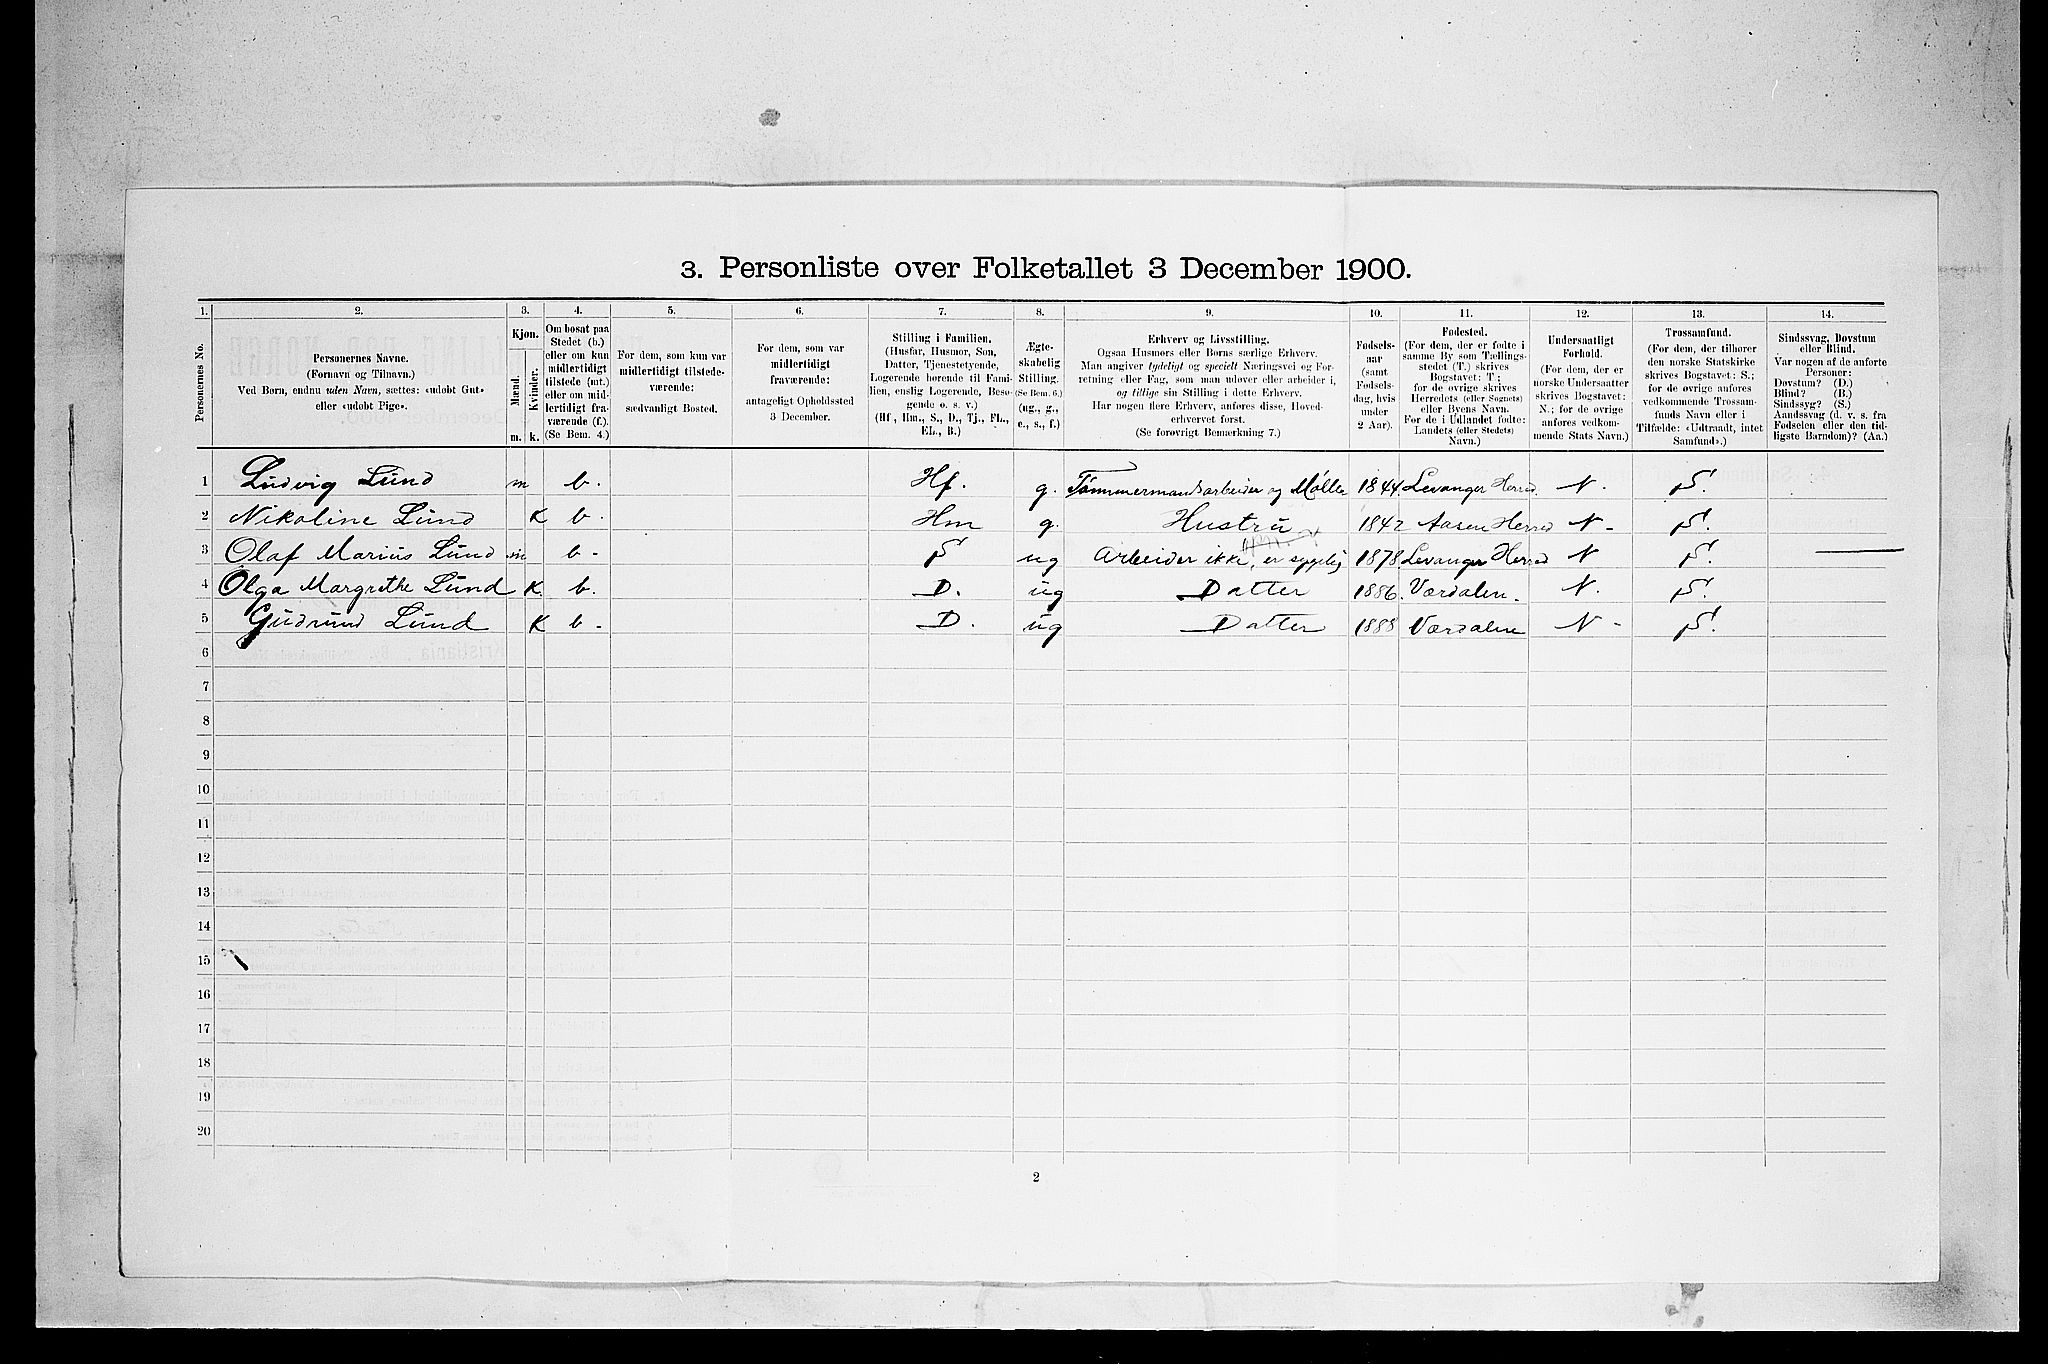 3. Personliste over Folketallet 3 December 1900.
1. 2. 3. 4. 5. 6. 7. 8. 9. 10. 11. 12. 13. 14.
Personernes No.
Personernes Navne.
(Fornavn og Tilnavn.)
Ved Børn, endnu uden Navn, sættes: «udøbt Gut»
eller «udøbt Pige».
Kjøn.
Mænd.
Kvinder.
m. k.
Om bosat paa
Stedet (b.)
eller om kun
midlertidigt
tilstede (mt.)
eller om mid-
lertidigt fra-
værende (f.).
(Se Bem. 4.)
For dem, som kun var
midlertidigt tilstede-
værende:
sædvanligt Bosted.
For dem, som var
midlertidigt
fraværende:
antageligt Opholdssted
3 December.
Stilling i Familien.
(Husfar, Husmor, Søn,
Datter, Tjenestetyende,
Logerende hørende til Fami-
lien, enslig Logerende, Besø-
gende o. s. v.)
(Hf., Hm., S., D., Tj., FL.,
EL., B.)
Ægte-
skabelig
Stilling.
(Se Bem. 6.)
(ug., g.,
e., s., f.)
Erhverv og Livsstilling.
Ogsaa Husmors eller Børns særlige Erhverv.
Man angiver tydeligt og specielt Næringsvei og For-
retning eller Fag, som man udøver eller arbeider i,
og tillige sin Stilling i dette Erhverv.
Har nogen flere Erhverv, anføres disse, Hoved-
erhvervet først.
(Se forøvrigt Bemærkning 7.)
Fødsels-
aar
(samt
Fødsels-
dag, hvis
under
2 Aar).
Fødested.
(For dem, der er fødte i
samme By som Tællings-
stedet (T.) skrives
Bogstavet: T.;
for de øvrige skrives
Herredets (eller Sognets)
eller Byens Navn.
For de i Udlandet fødte:
Landets (eller Stedets)
Navn.)
Undersaatligt
Forhold.
(For dem, der er
norske Undersaatter
skrives Bogstavet:
N.; for de øvrige
anføres vedkom-
mende Stats Navn.)
Trossamfund.
(For dem, der tilhører
den norske Statskirke
skrives Bogstavet: S.;
for de øvrige anføres
vedkommende Trossam-
funds Navn eller i
Tilfælde: «Udtraadt, intet
Samfund».)
Sindssvag, Døvstum
eller Blind.
Var nogen af de anførte
Personer:
Døvstum? (D.)
Blind? (B.)
Sindssyg? (S.)
Aandssvag (d. v. s. fra
Fødselen eller den tid-
ligste Barndom)? (Aa.)
1 Ludvig Lund m b. Hf. g. Tømmermandsarbeider og Møller 1844 Levanger Herred. N. S.
2 Nikoline Lund K b. Hm g. Hustru 1842 Aasen Herred N- S.
3 Olaf Marius Lund m b- S ug Arbeider ikke, er sygelig 1878 Levanger Herred N S.
4 Olga Margrethe Lund K. b. D. ug Datter 1886. Værdalen. N. S.
5 Gudrund Lund K b- D. ug Datter 1888 Værdalen N- S.
6
7
8
9
10
11
12
13
14
15
16
17
18
19
20
2